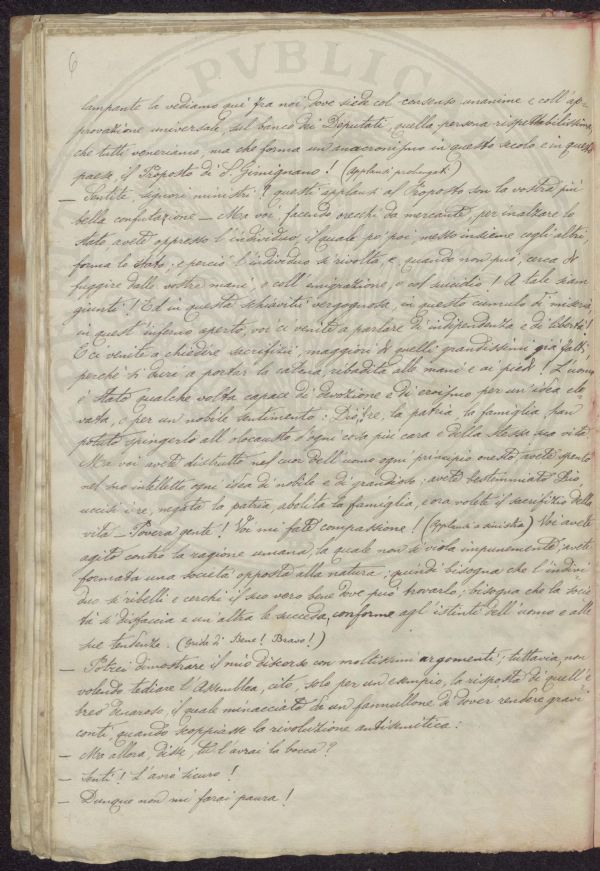 6
lampante la vediamo qui fra noi, dove siede col consenso unanime e coll'ap-
provazione universale, sul banco dei Deputati, quella persona rispettabilissima,
che tutti veneriamo, ma che forma un anacronismo in questo secolo e in questo
paese, il Proposto di S. Gimignano! (Applausi prolungati)
— Sentite, signori ministri? questi applausi al Proposto son la vostra più
bella confutazione — Ma voi, facendo orecchi da mercante, per inalzare lo
stato avete oppresso l'individuo, il quale po' poi, messo insieme cogli altri,
forma lo stato; e perciò l'individuo si rivolta, e quando non può, cerca di
fuggire dalle vostre mani, o coll'emigrazione, o col suicidio! A tale siam
giunti! Ed in questa schiavitù vergognosa, in questo cumulo di miserie,
in quest'inferno aperto, voi ci venite a parlare di indipendenza e di libertà!
E ci venite a chiedere sacrifizii maggiori di quelli grandissimi già fatti,
perchè si duri a portar la catena ribadita alle mani e ai piedi! L'uomo
è stato qualche volta capace di devozione e di eroismo per un'idea ele-
vata, o per un nobile sentimento: Dio, re, la patria, la famiglia, han
potuto spingerlo all'olocausto d'ogni cosa più cara e della stessa sua vita
Ma voi avete distrutto nel cuor dell'uomo ogni principio onesto, avete spento
nel suo intelletto ogni idea di nobile e di grandioso; avete bestemmiato Dio,
uccisi i re, negata la patria, abolita la famiglia, e ora volete il sacrifizio della
vita — Povera gente! Voi mi fate compassione! (Applausi a sinistra) Voi avete
agito contro la ragione umana, la quale non si viola impunemente; avete
formata una società opposta alla natura; quindi bisogna che l'indivi-
duo si ribelli e cerchi il suo vero bene dove può trovarlo; bisogna che la socie-
tà si disfaccia e un altra le succeda, conforme agl'istinti dell'uomo e alle
sue tendenze. (Grida di Bene! Bravo!)
— Potrei dimostrare il mio discorso con moltissimi argomenti; tuttavia, non
volendo tediare l'Assemblea, cito, solo per un esempio, la risposta di quell'e-
breo denaroso, il quale minacciato da un fannullone di dover rendere gravi
conti, quando scoppiasse la rivoluzione antisemitica:
— Ma allora, disse, tu l'avrai la bocca?
— Senti! L'avrò sicuro!
— Dunque non mi farai paura!